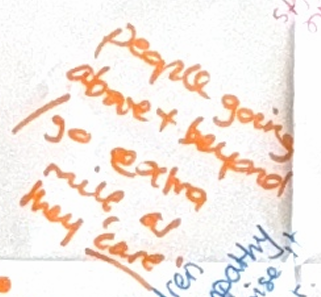 people going
above + beyond
/ go extra
mile as
they 'care'
empathy